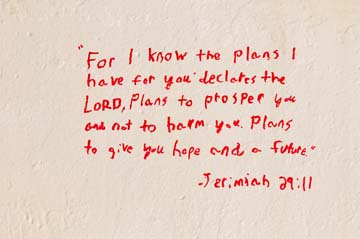 "For I know the plans I
have for you" declares the
LORD, Plans to prosper you
and not to harm you. Plans
to give you hope and a future."
-Jerimiah 29:11